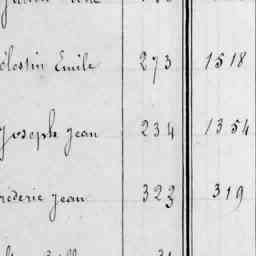 élestin Emile 273 1518
Joseph Jean 234 1354
rédéric Jean 323 319